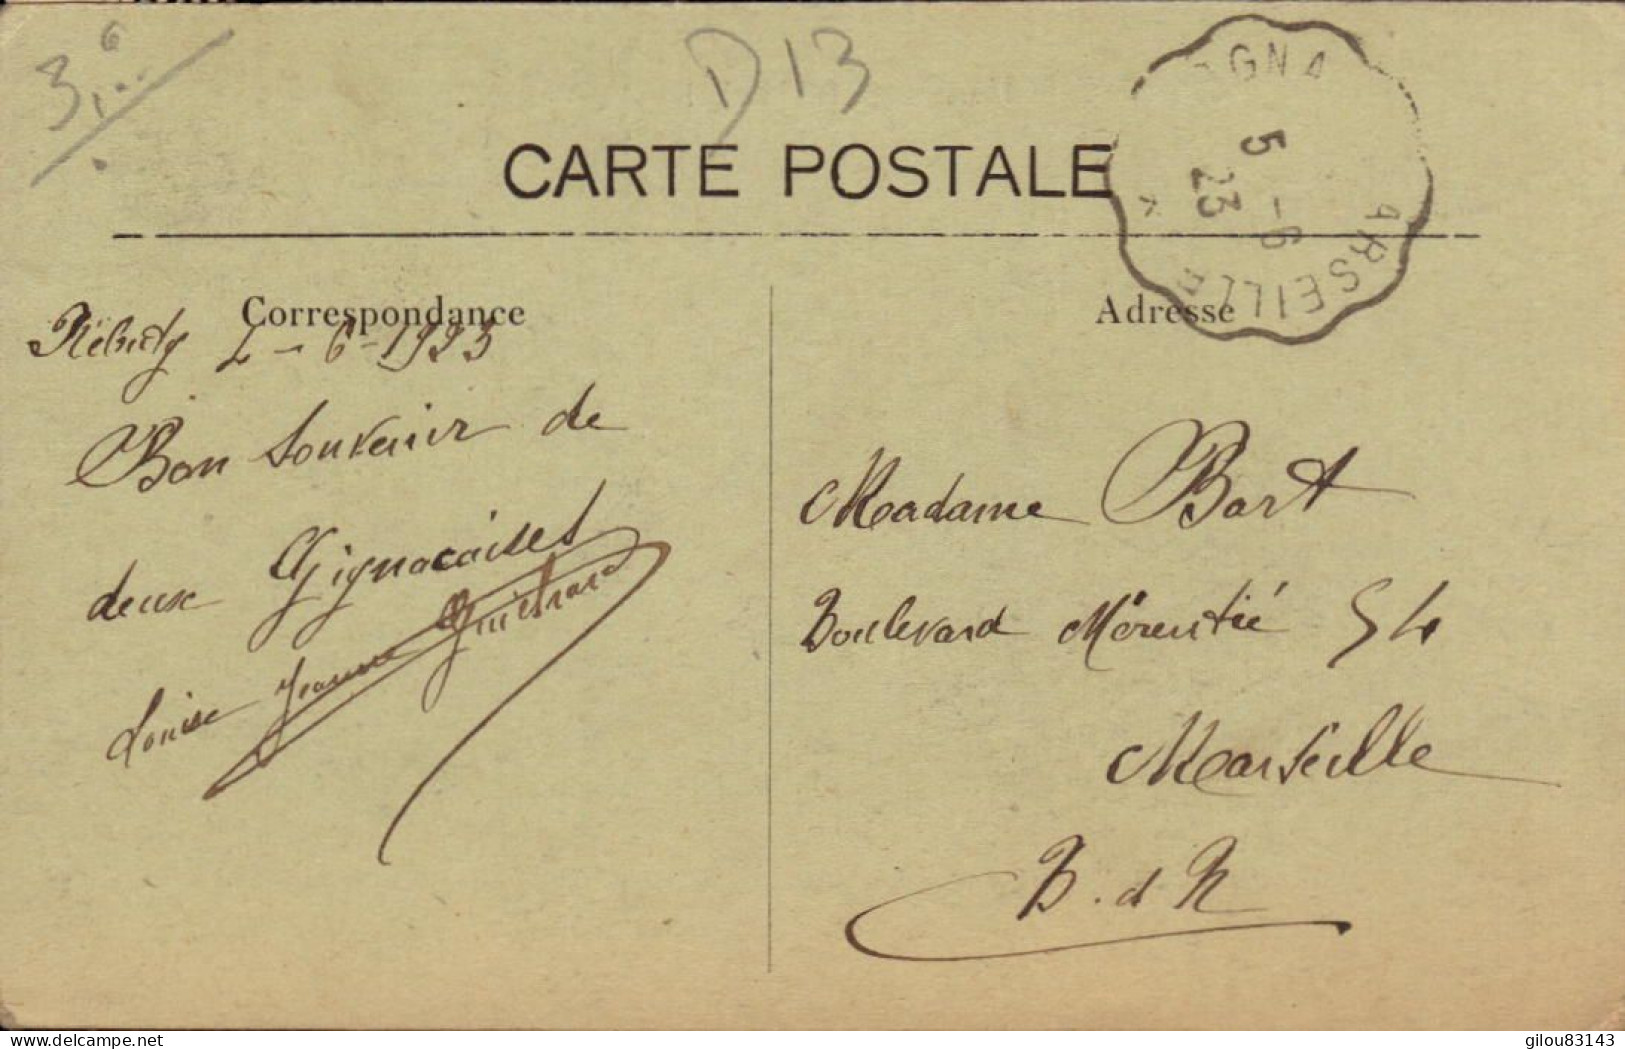 3,..6
D13
CARTE POSTALE
GNA
5 -6
23
ARSEILLE
Correspondance
Adresse
Rébuty 2-6-1923
Bon Souvenir de
deux Gignacaises
Louise Jeanne Guitrard
Madame Bart
Boulevard Mérentié 54
Marseille
B. d R
www.delcampe.net
gilou83143